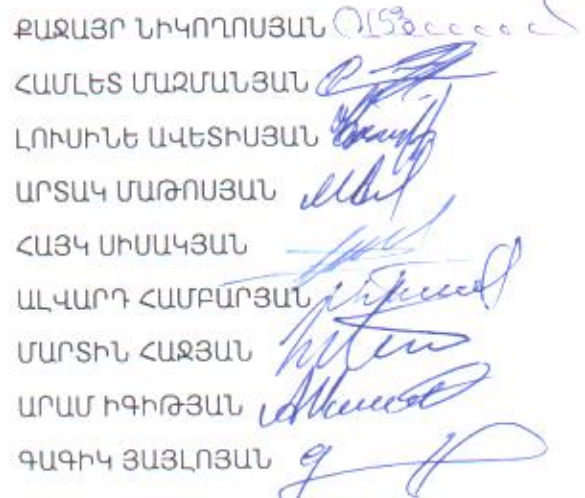 ՔԱՋԱՅՐ ՆԻԿՈՂՈՍՅԱՆ
ՀԱՄԼԵՏ ՄԱԶՄԱՆՅԱՆ
ԼՈՒՍԻՆԵ ԱՎԵՏԻՍՅԱՆ
ԱՐՏԱԿ ՄԱԹՈՍՅԱՆ
ՀԱՅԿ ՍԻՍԱԿՅԱՆ
ԱԼՎԱՐԴ ՀԱՄԲԱՐՅԱՆ
ՄԱՐՏԻՆ ՀԱՋՅԱՆ
ԱՐԱՄ ԻԳԻԹՅԱՆ
ԳԱԳԻԿ ՅԱՅԼՈՅԱՆ